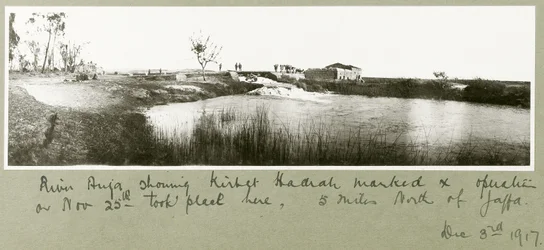 River Auja, showing Kirbet Hadrah marked x operation
on Nov 25th took place here. 5 miles North of Jaffa.
Dec 3rd 1917.